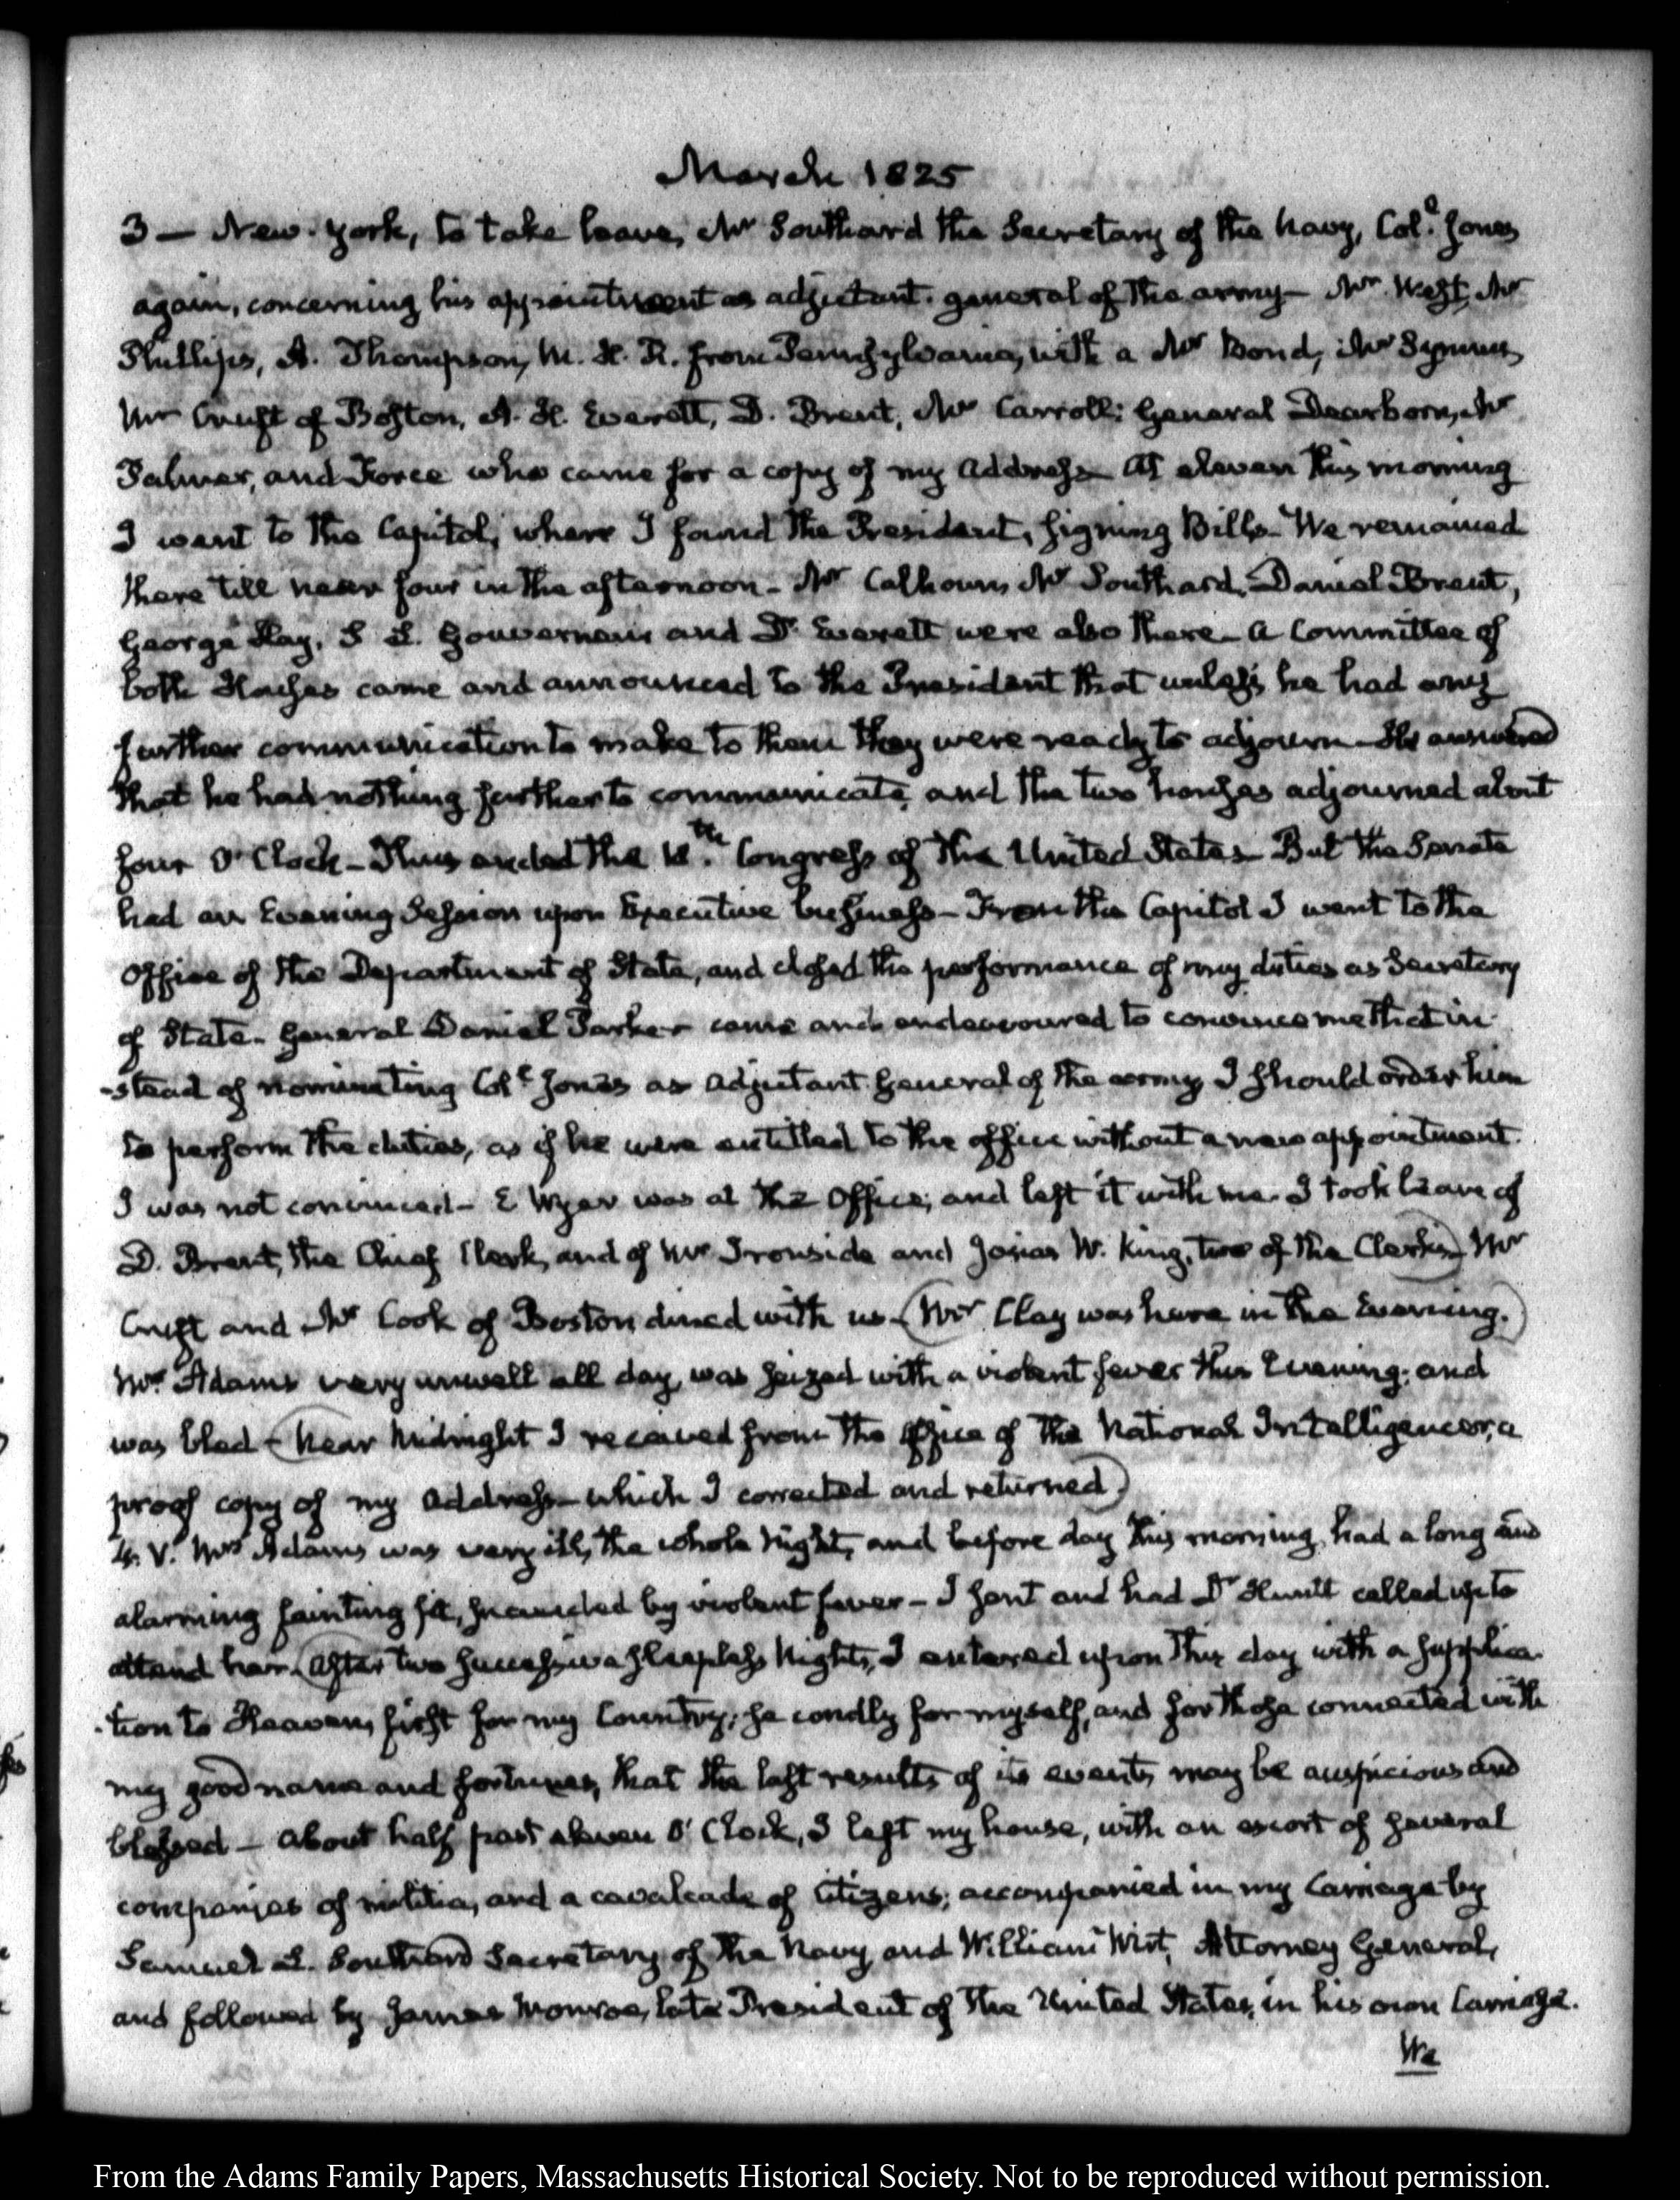 March 1825
3 — New-York, to take leave, Mr Southard the Secretary of the Navy, Coll. Jones
again, concerning his appointment as adjutant general of the army— Mr West, Mr
Phillips, A. Thompson, M. H. R. from Pennsylvania, with a Mr Bond, Mr
Mr Cruft of Boston, A. H. Everett, D. Brent, Mr Carroll; General Dearborn, Mr
Palmer, and Force who came for a copy of my address— At eleven this morning
I went to the Capitol, where I found the President, signing Bills— We remained
there till near four in the afternoon— Mr Calhoun, Mr Southard, Daniel Brent,
George Hay, S L. Gouverneur and Dr Everett were also there— A Committee of
both Houses came and announced to the President that unless he had any
further communication to make to them they were ready to adjourn— He answered
that he had nothing further to communicate, and the two houses adjourned about
four O'Clock— Thus ended the 18th. Congress of the United States— But the Senate
had an Evening Session upon Executive business— From the Capitol I went to the
Office of the Department of State, and closed the performance of my duties as Secretary
of State— General Daniel Parker came and endeavoured to convince me that in-
-stead of nominating Coll Jones as Adjutant General of the army, I should order him
to perform the duties, as if he were entitled to the office without a new appointment.
I was not convinced— E Wyer was at the Office, and left it with me. I took leave of
D. Brent, the Chief Clerk, and of Mr Ironside and Josias W. King, two of the Clerks— Mr
Cruft and Mr Cook of Boston dined with us— Mr Clay was here in the Evening.
Mrs Adams very unwell all day, was seized with a violent fever this Evening; and
was bled— Near Midnight I received from the Office of the National Intelligencer, a
proof copy of my address— which I corrected and returned
4. V. Mrs Adams was very ill, the whole Night, and before day this morning, had a long and
alarming fainting fit, succeeded by violent fever— I sent and had Dr Huntt called up to
attend her. After two successive sleepless Nights, I entered upon this day with a supplica-
-tion to Heaven, first for my Country; secondly for myself, and for those connected with
my good name and fortunes, that the last results of its events may be auspicious and
blessed— About half past eleven O'Clock, I left my house, with an escort of several
companies of militia, and a cavalcade of Citizens; accompanied in my Carriage by
Samuel L. Southard Secretary of the Navy, and William Wirt, Attorney General,
and followed by James Monroe, late President of the United States, in his own Carriage.
We
From the Adams Family Papers, Massachusetts Historical Society. Not to be reproduced without permission.